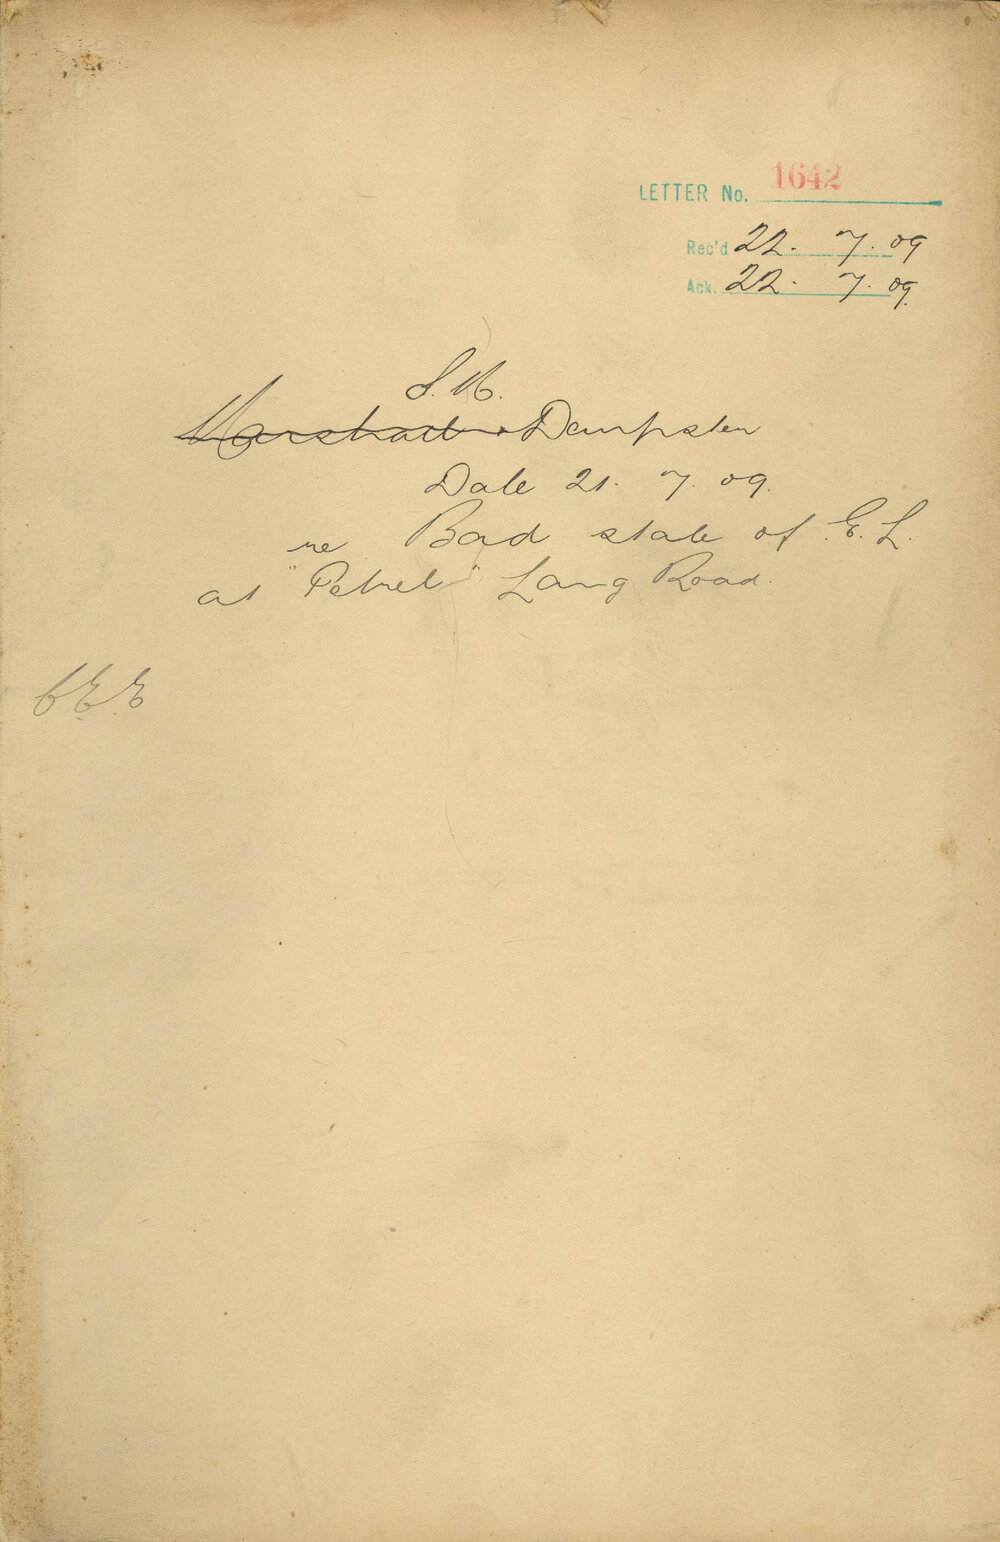 LETTER No. 1642
Rec'd 22. 7. 09
Ack. 22. 7. 09.
S. M.
Marshall & Dempster
Date 21. 7. 09.
re Bad state of E. L.
at "Petrel" Lang Road.
C.E.E